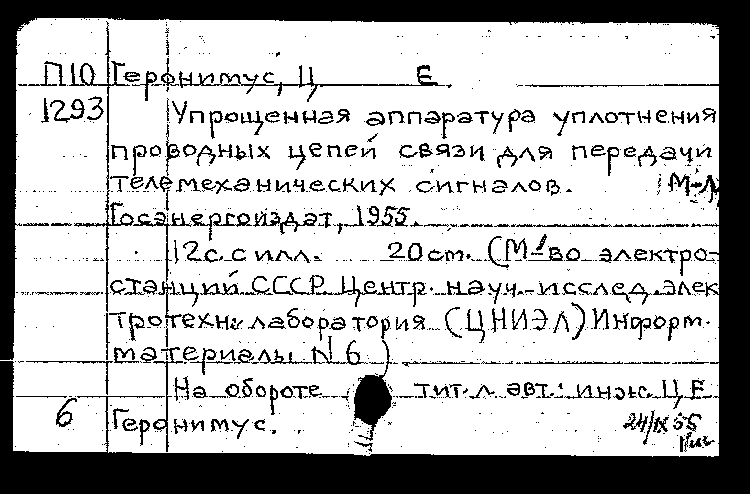 П10 Геронимус, Ц. Е.
1293 Упрощенная аппаратура уплотнения
проводных цепей связи для передачи
телемеханических сигналов. М-Л
Госэнергоиздат, 1955.
12 с. с илл. 20 см. (М-во электро-
станций СССР. Центр. науч.-исслед. элек
тротехн. лаборатория (ЦНИЭЛ) Информ.
материалы N 6)
На обороте тит. л. авт.: инж. Ц. Е.
6 Геронимус.
24/IX 55